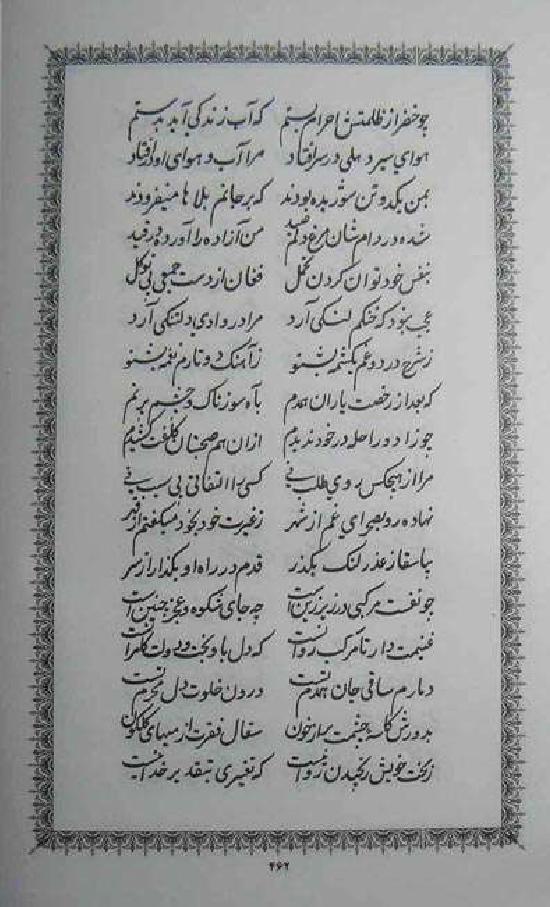 چو خضر از ظلمتش احرام بستم که آب زندگی آمد بدستم
هوای سیر دهلی در سر افتاد مرا آب و هوای او در افتاد
بمن یکدو تن شوریده بودند که بر جانم بلاها میفزودند
شده در دام شان مرغ دلم صید من آزاده را آورد در قید
بنفس خود توان کردن تحمل فغان از دست جمعی بی توکل
عجب نبود که خنگم لنگی آرد مرا در وادی دلتنگی آرد
ز شرح درد و غم یکشمه بشنو ز آهنگ دو تارم نغمه بشنو
که بعد از رخصت یاران همدم بآه سوزناک و چشم پرنم
چو زاد و راحله در خود ندیدم از ان هم صحبتان کلفت کشیدم
مرا از هیچکس روی طلب نی کسی را التفاتی بی سبب نی
نهاده رو بصحرای غم از شهر ز غیرت خود بخود میگفتم از قهر
بپاسخ از عذر لنگ بگذر قدم در راه او بگذار از سر
چو نفست مرکبی در زیر زین است چه جای شکوه و عجز چنین است
غنیمت دار تا مرکب روانست که دل با بخت و دولت کامرانست
دمادم ساقی جان همدم تست درون خلوت دل محرم تست
بدورش کاسه چشمت پر از خون سفال فقرت از میهای گلگون
ز بخت خویش رنجیدن روا نیست که تغییری بتقدیر خدا نیست
۴۶۲